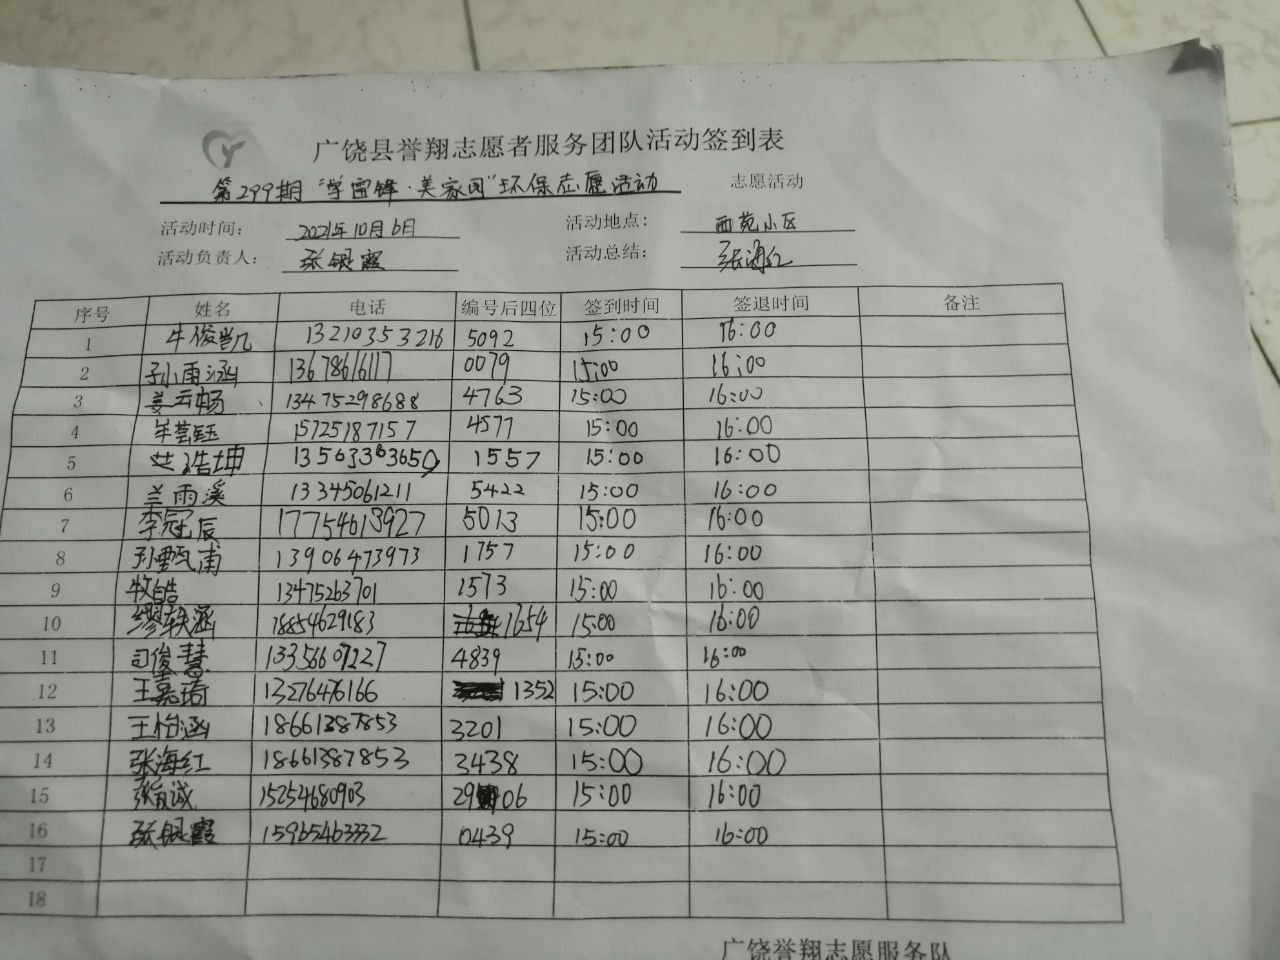 广饶县誉翔志愿者服务团队活动签到表
第299期"学雷锋·美家园"环保志愿活动 志愿活动
活动时间： 2021年10月6日 活动地点： 西苑小区
活动负责人： 张银霞 活动总结： 张海红
序号 姓名 电话 编号后四位 签到时间 签退时间 备注
1 牛俊凯 13210353216 5092 15:00 16:00
2 孙雨涵 13678616117 0079 15:00 16:00
3 姜云畅 13475298688 4763 15:00 16:00
4 芸钰 15725187157 4577 15:00 16:00
5 浩坤 1557 15:00 16:00
6 兰雨溪 13345061211 5422 15:00 16:00
7 李冠辰 17754613927 5013 15:00 16:00
8 孙甄甫 13906473973 1757 15:00 16:00
9 牧皓 13475263701 1573 15:00 16:00
10 缪轶涵 18854629183 1654 15:00 16:00
11 司俊慧 13356607227 4839 15:00 16:00
12 王嘉琦 13276476166 1352 15:00 16:00
13 王怡涵 18661387853 3201 15:00 16:00
14 张海红 18661387853 3438 15:00 16:00
15 诚 15254680903 2906 15:00 16:00
16 张银霞 15965463332 0439 15:00 16:00
17
18
广饶誉翔志愿服务队